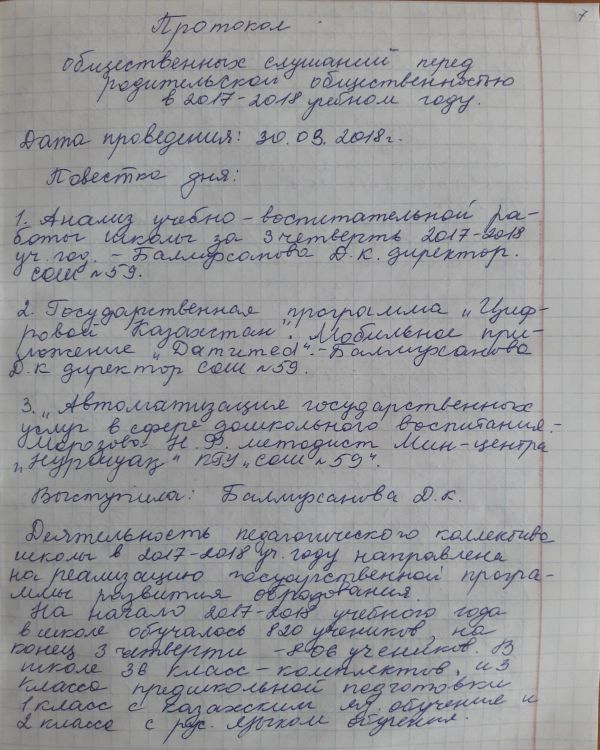 7
Протокол
общественных слушаний перед
родительской общественностью
в 2017-2018 учебном году.
Дата проведения: 30.03.2018г.
Повестка дня:
1. Анализ учебно-воспитательной ра-
боты школы за 3 четверть 2017-2018
уч. год. - Балмуханова Д.К. директор.
СОШ №59.
2. Государственная программа „Циф-
ровой Казахстан". Мобильное при-
ложение „Damumed".-Балмуханова
Д.К директор СОШ №59.
3. „Автоматизация государственных
услуг в сфере дошкольного воспитания.-
Морозова Н.В. методист Мин-центра
„Нуршуақ" КГУ „СОШ №59".
Выступила: Балмуханова Д.К.
Деятельность педагогического коллектива
школы в 2017-2018 уч. году направлена
на реализацию государственной програ-
ммы развития образования.
На начало 2017-2018 учебного года
в школе обучалось 820 учеников, на
конец 3 четверти -806 учеников. В
школе 36 класс-комплектов, и 3
класса предшкольной подготовки
1 класс с казахским яз. обучение и
2 класса с рус. языком обучения.